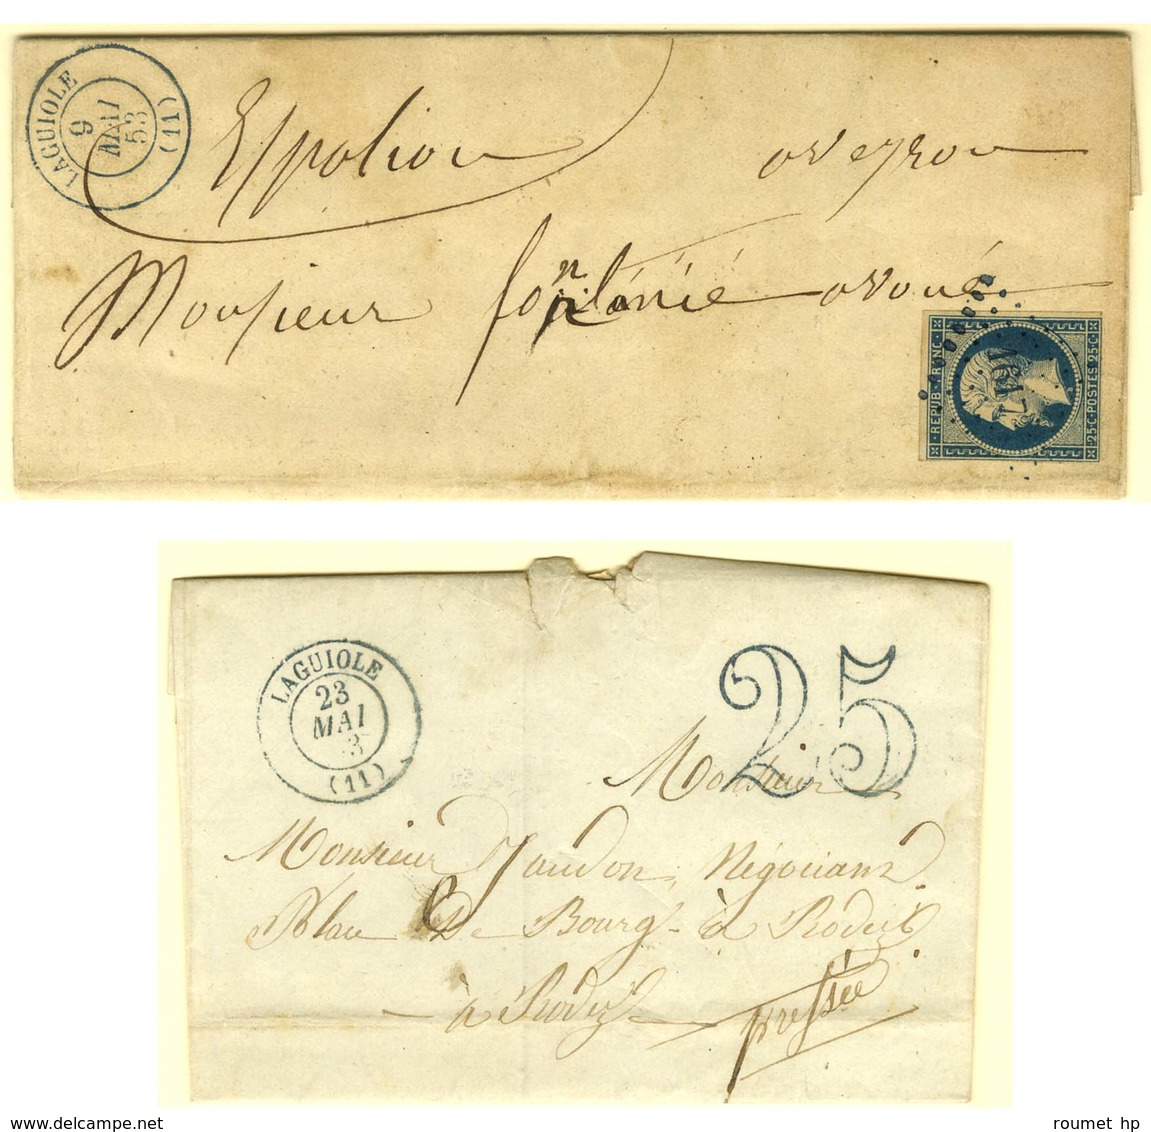 LAGUIOLE
9
MAI
53
(11)
Espalion aveyron
Monsieur fontanié avoué
REPUB. FRANC.
1617
25.C.POSTES.25.C.
LAGUIOLE
23
MAI
3
(11)
25
Monsieur
Monsieur Jaudon, Négociant
Place De Bourg à Rodez
à Rodez
pressée
www.delcampe.net
roumet hp